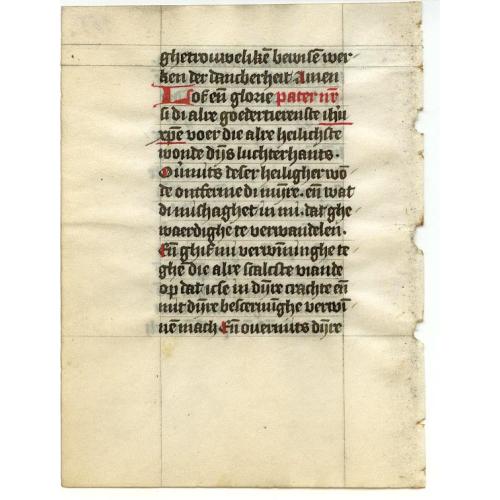 ghetrouwelikē bewisē wer
ken der dancberheit Amen
Lof eñ glorie pater nr̄
si di alre goedertierenste ihū
xpē voer die alre heilichste
wonde dijs luchterhants.
Ouīnits deser heiligher wō
de ontferme di mijre. eñ wat
di mishaghet in mi. dat ghe
waerdighe te verwandelen.
Eñ ghif mi verwīninghe te
ghē die alre scalcste viande
op dat icse in dijre crachte eñ
mit dijre bescermīghe verwī
nē mach Eñ overmits dijre